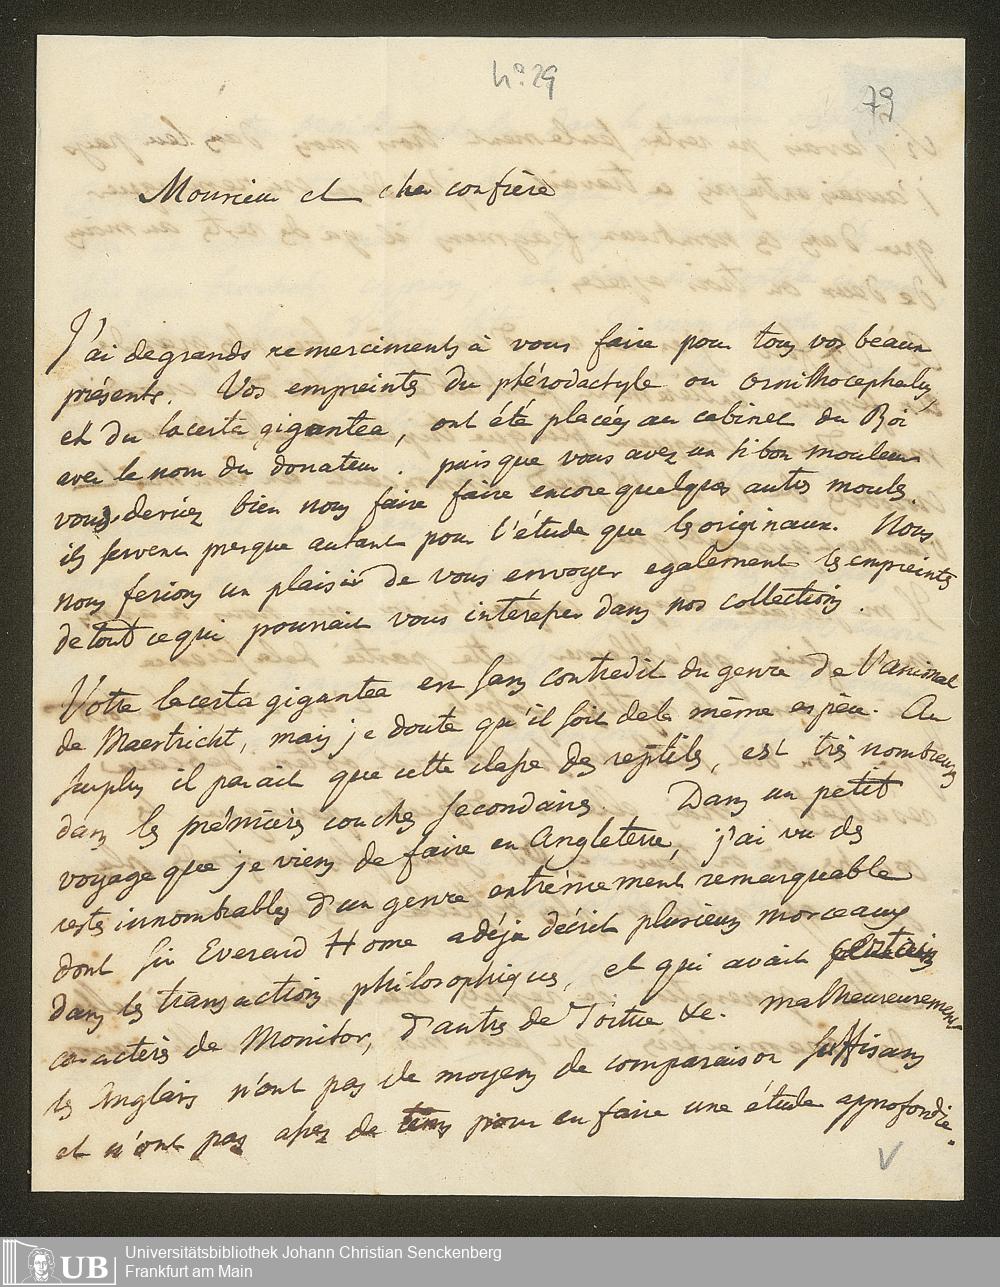 N.o 29
79
Monsieur et cher confrère
J'ai de grands remerciments à vous faire pour tous vos beaux
présents. Vos empreintes du ptérodactyle ou ornithocephalus,
et du lacerta gigantea, ont été placées au cabinet du Roi
avec le nom du donateur. puisque vous avez un si bon mouleur
vous devriez bien nous faire faire encore quelques autres moules.
ils servent presque autant pour l'étude que les originaux. Nous
nous ferions un plaisir de vous envoyer egalement les empreintes
de tout ce qui pourrait vous intéresser dans nos collections.
Votre lacerta gigantea est sans contredit du genre de l'animal
de Maestricht, mais je doute qu'il soit de la même espèce. Au
surplus il parait que cette classe des reptiles, est très nombreuse
dans les prémières couches secondaires. Dans un petit
voyage que je viens de faire en Angleterre, j'ai vu des
restes innombrables d'un genre extrémement remarquable
dont Sir Everard Home a déja décrit plusieurs morceaux
dans les transactions philosophiques, et qui avait certains
caractères de Monitor, d'autres de Tortue &c. malheureusement
les Anglais n'ont pas de moyens de comparaison suffisans
et n'ont pas assez de tems pour en faire une étude approfondie.
V
UB
Universitätsbibliothek Johann Christian Senckenberg
Frankfurt am Main